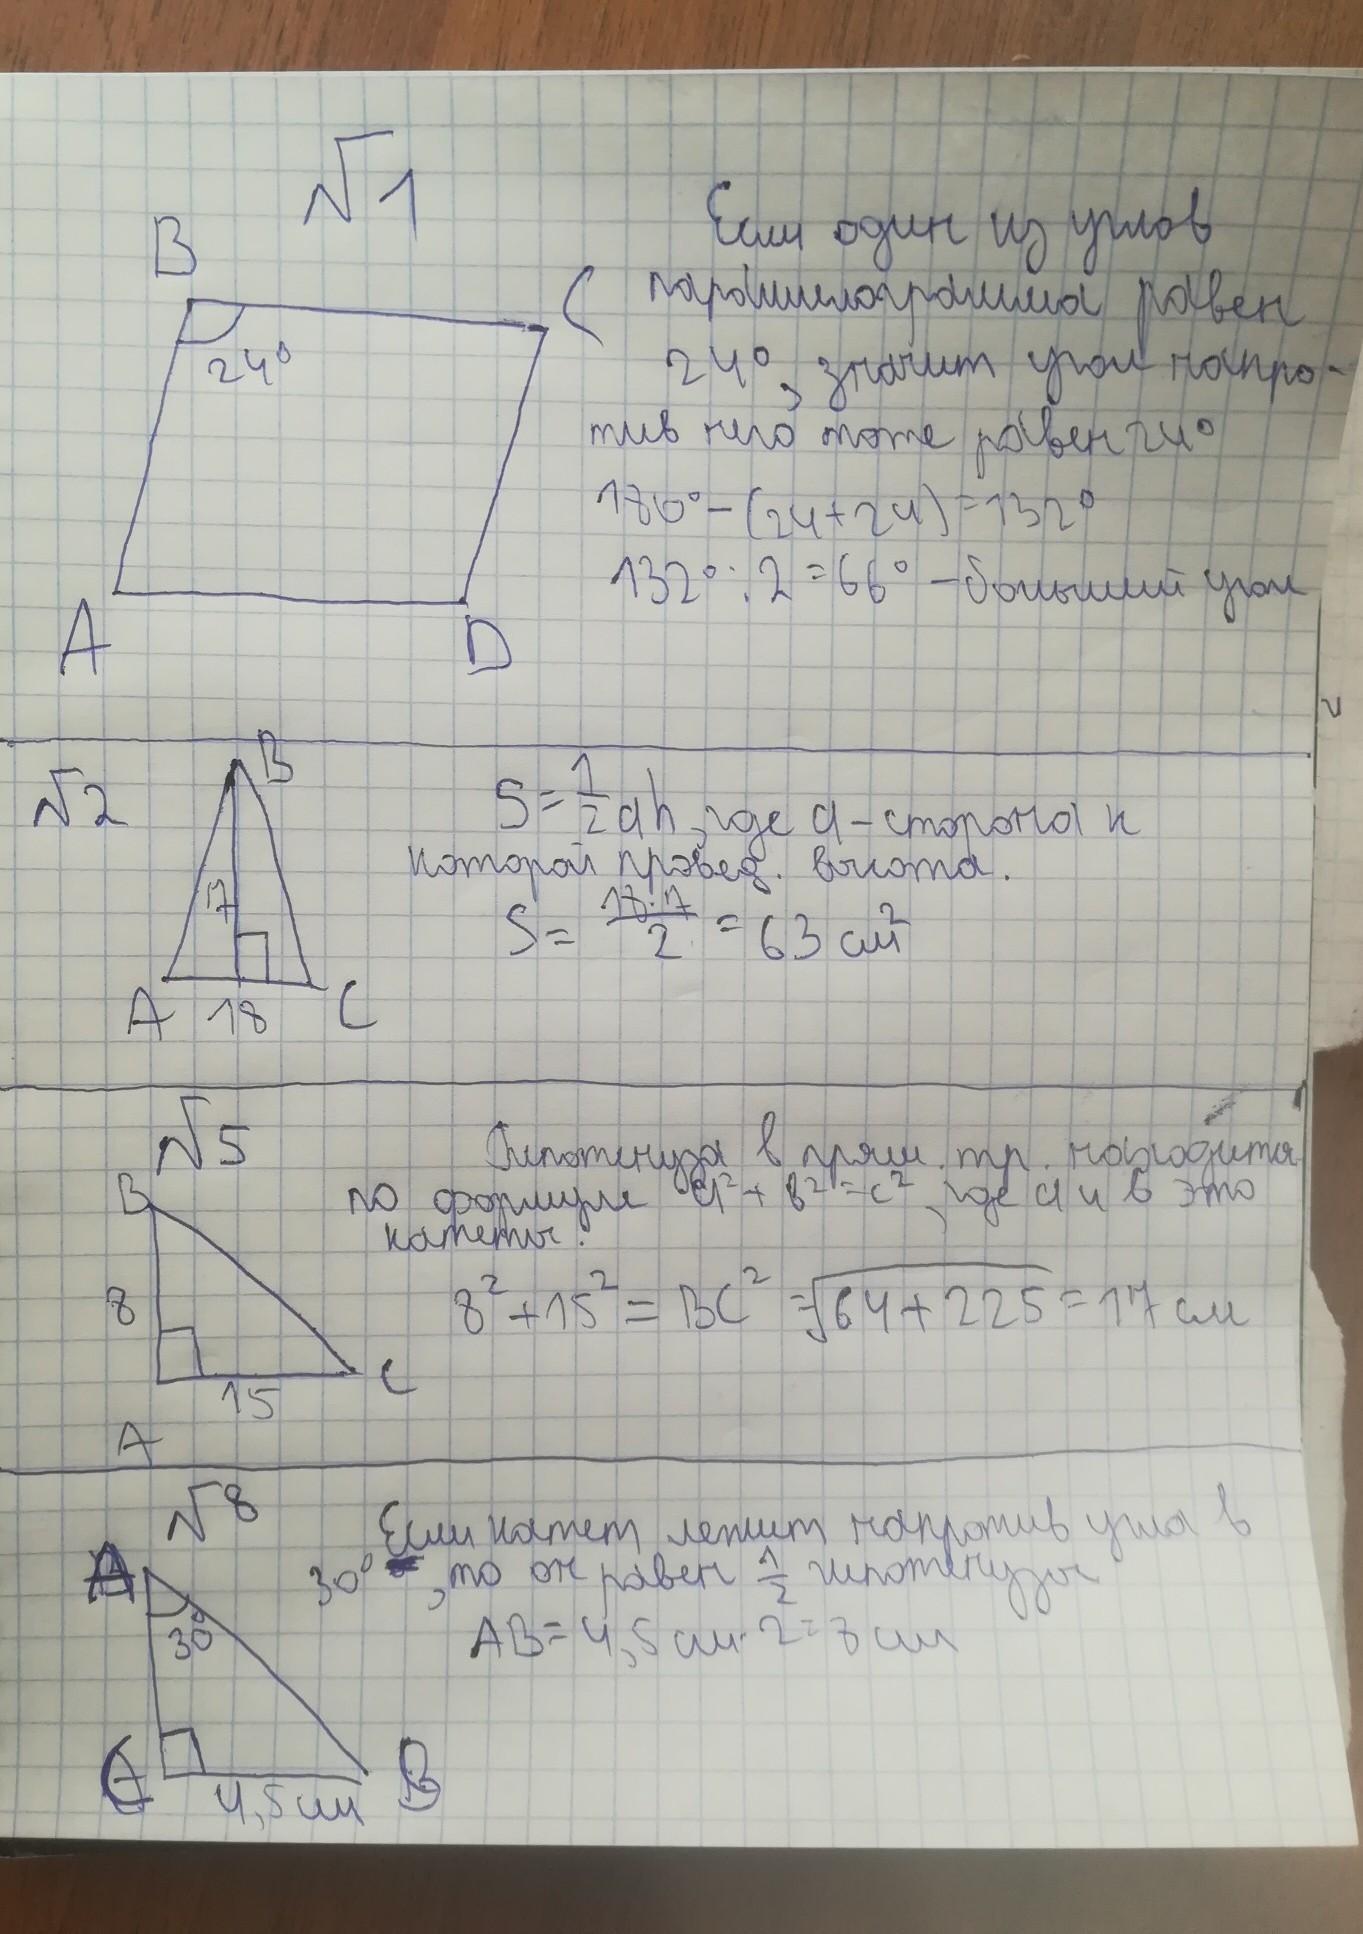 √1
B
C
24°
A
D
Если один из углов
параллелограмма равен
24°, значит угол напро-
тив него тоже равен 24°
180° - (24+24) = 132°
132° : 2 = 66° - больший угол
√2
B
7
A 18 C
S = 1/2 ah, где a - сторона к
которой провед. высота.
S = 18·7/2 = 63 см²
√5
B
8
15
C
A
Гипотенуза в прям. тр. находится
по формуле a² + b² = c², где a и b это
катеты.
8² + 15² = BC² = √64+225 = 17 см
√8
A
30°
C
4,5 см
B
Если катет лежит напротив угла в
30°, то он равен 1/2 гипотенузы
AB = 4,5 см · 2 = 8 см